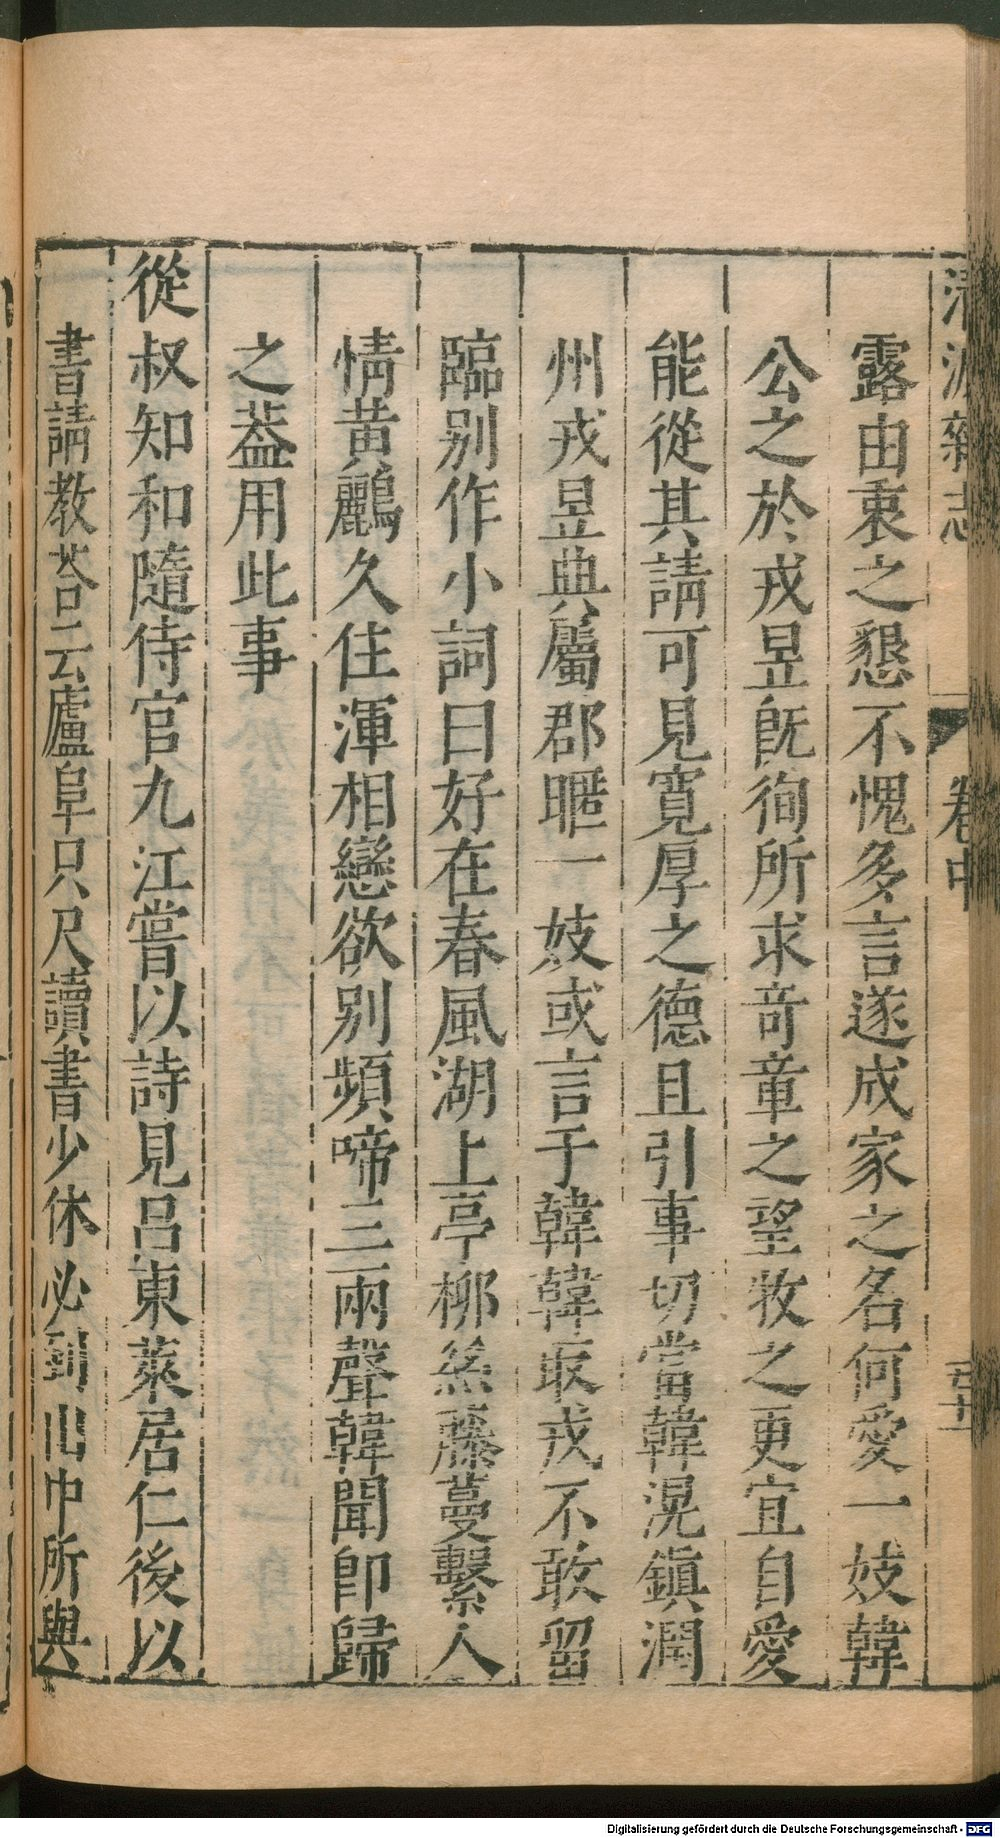 清波雜志 卷中
露由衷之懇不愧多言遂成家之名何愛一妓韓
公之於戎昱旣徇所求奇章之望牧之更宜自愛
能從其請可見寬厚之德且引事切當韓滉鎮潤
州戎昱典屬郡暱一妓或言于韓韓取戎不敢留
臨别作小詞曰好在春風湖上亭柳絲藤蔓繫人
情黄鸝久住渾相戀欲别頻啼三兩聲韓聞卽歸
之葢用此事
從叔知和隨侍官九江嘗以詩見呂東萊居仁後以
書請教荅云廬阜只尺讀書少休必到山中所與
Digitalisierung gefördert durch die Deutsche Forschungsgemeinschaft - DFG